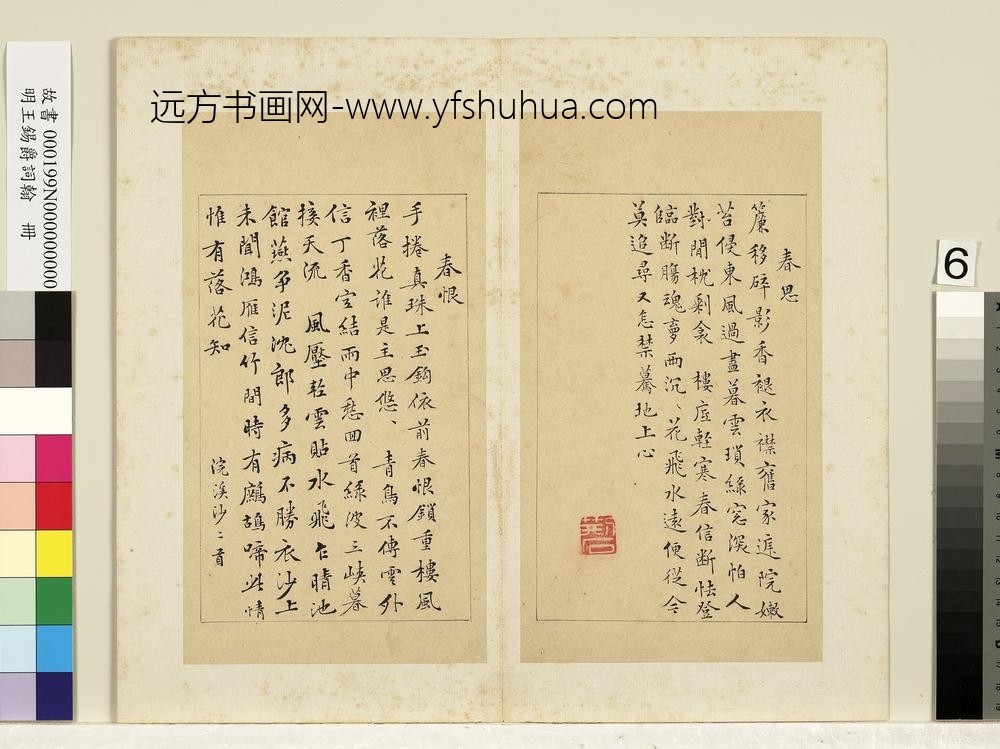 远方书画网-www.yfshuhua.com
故書 000199N000000000
明王錫爵詞翰 冊
6
春思
簾移碎影香褪衣襟舊家遲院嫩
苔侵東風過盡暮雲瑣綠窓深怕人
對閒枕剩衾 樓底輕寒春信斷怯登
臨斷腸魂夢兩沉、花飛水遠便從今
莫追尋又怎禁驀地上心
春恨
手捲真珠上玉鈎依前春恨鎖重樓風
裡落花誰是主思悠、 青鳥不傳雲外
信丁香空結雨中愁回首綠波三峽暮
接天流 風壓輕雲貼水飛乍晴池
館燕爭泥沈郎多病不勝衣沙上
未聞鴻雁信竹間時有鷓鴣啼此情
惟有落花知
浣溪沙二首